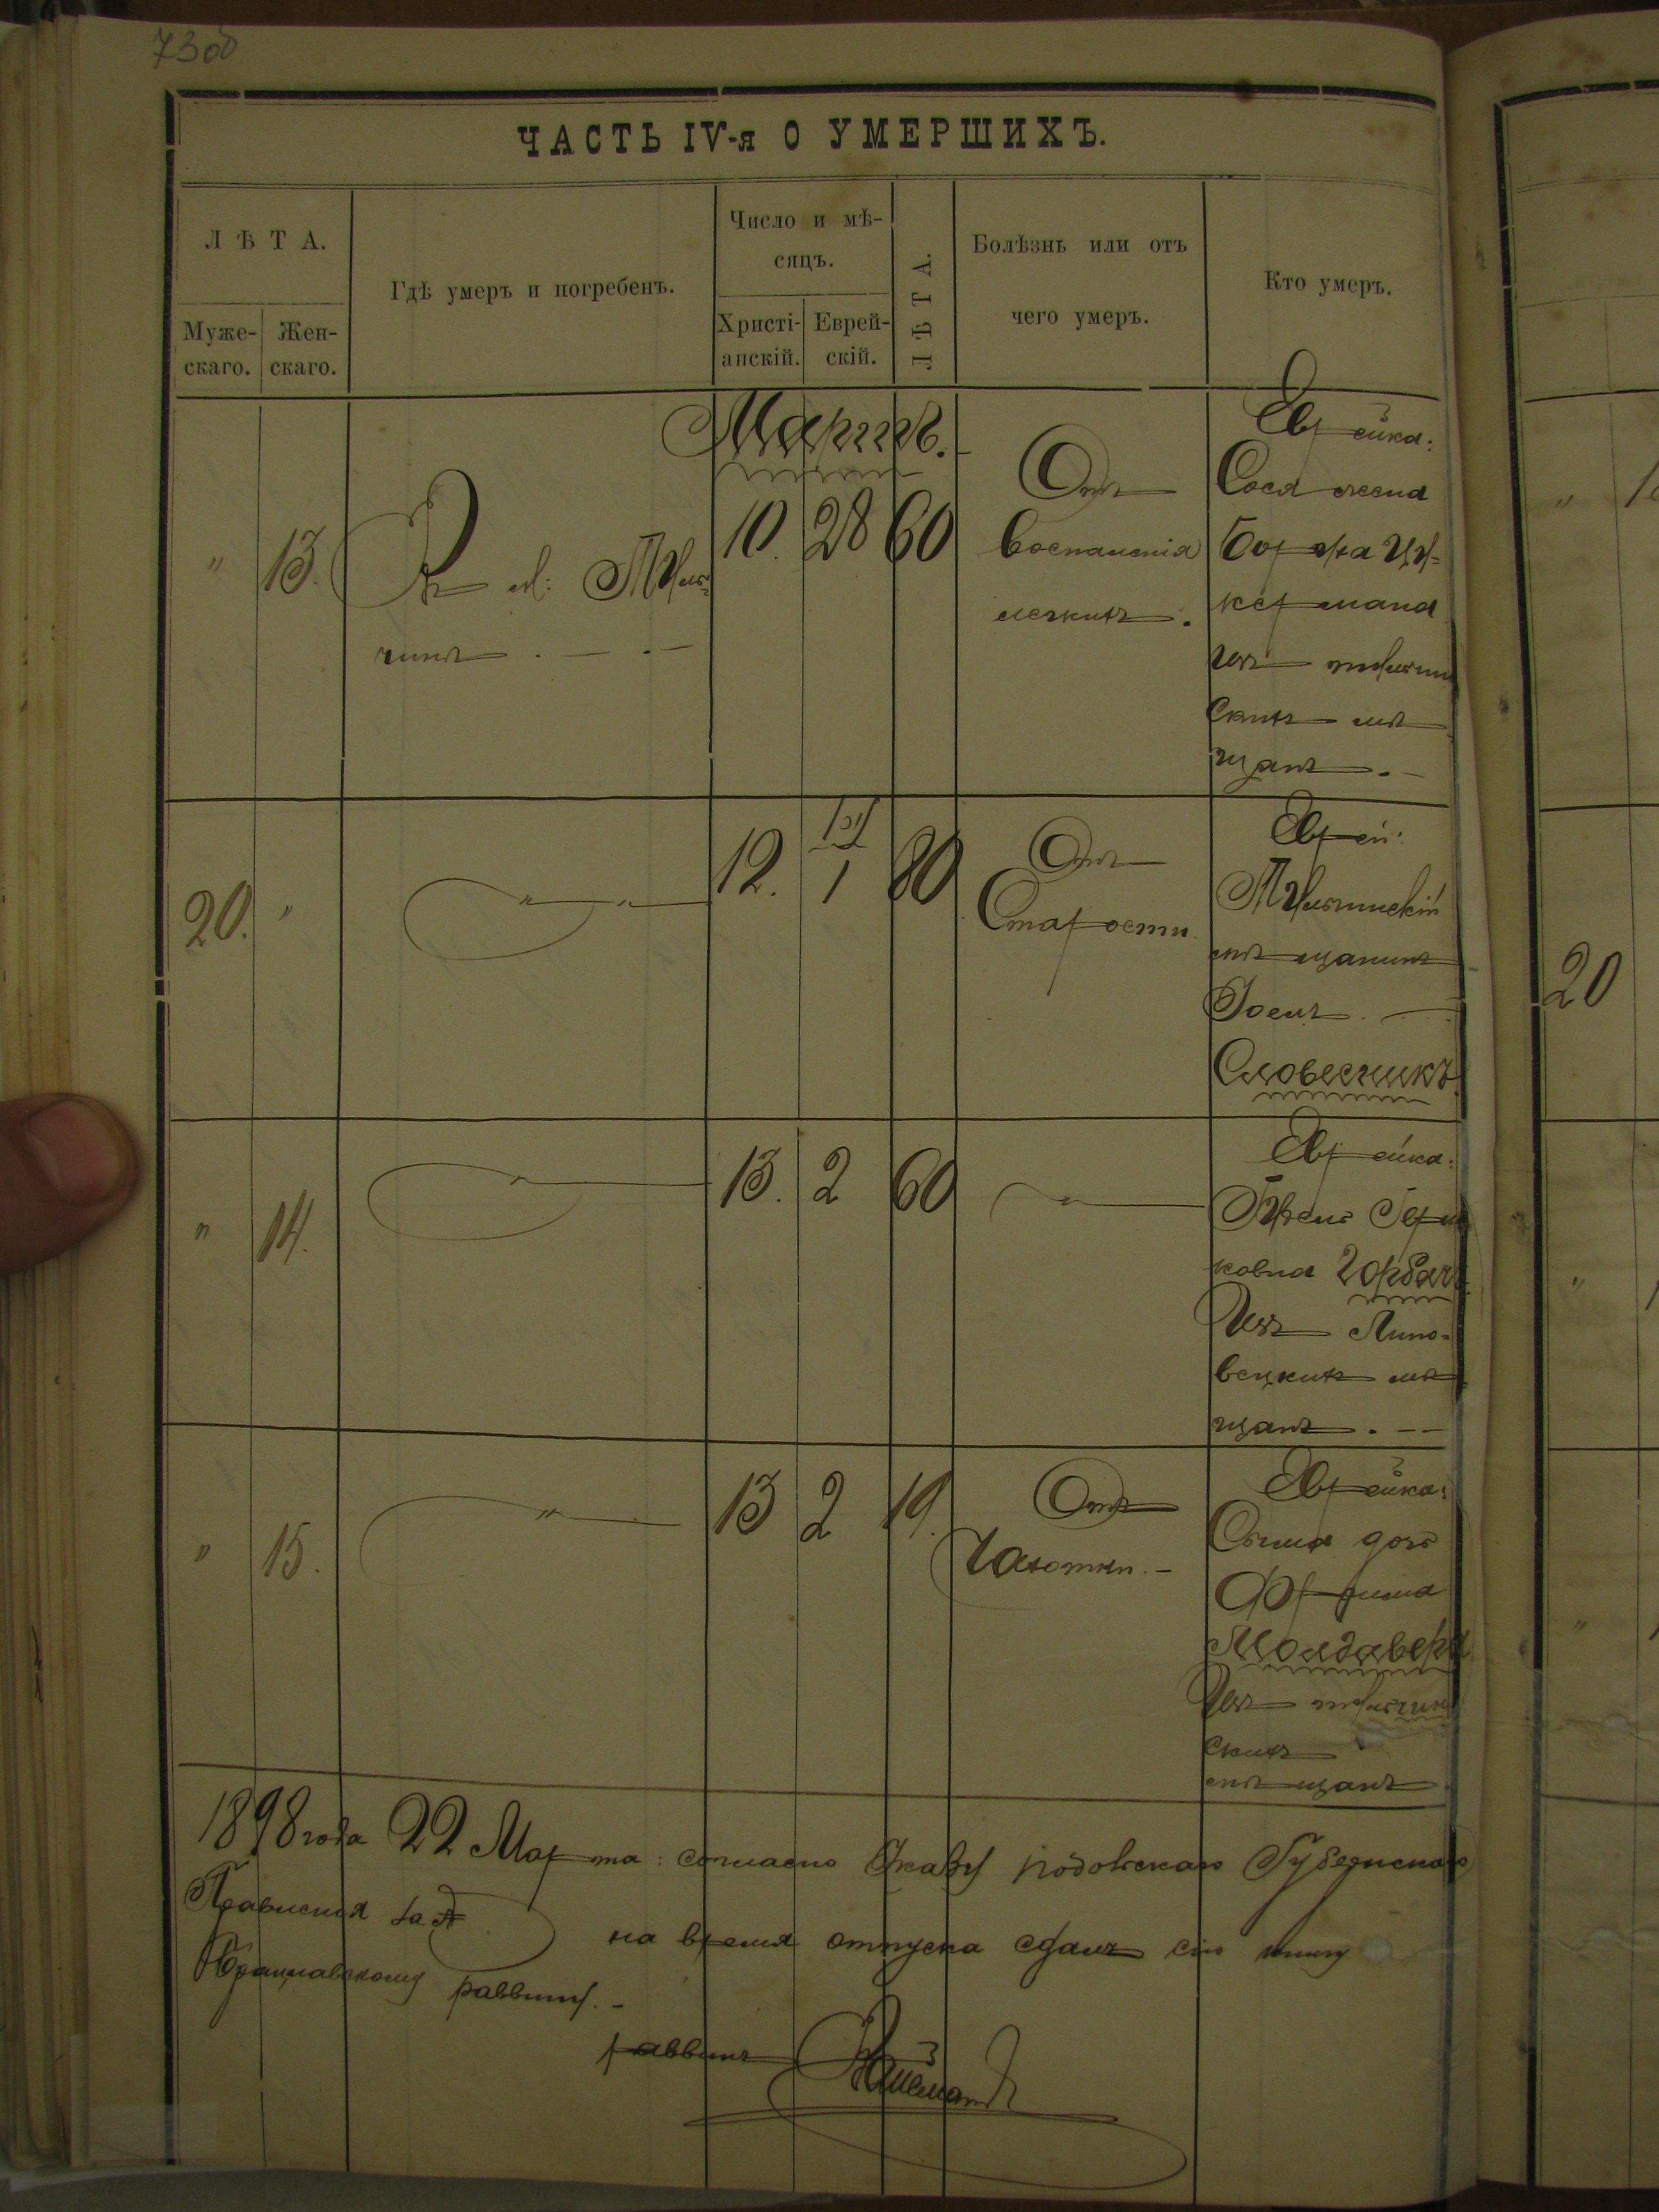 73об
ЧАСТЬ IV-я О УМЕРШИХЪ.
ЛѢТА.
Муже-
скаго.
Жен-
скаго.
Гдѣ умеръ и погребенъ.
Число и мѣ-
сяцъ.
Христі-
анскій.
Еврей-
скій.
ЛѢТА.
Болѣзнь или отъ
чего умеръ.
Кто умеръ.
Мартъ.
"
13.
В м: Туль=
чинѣ . — . —
10.
28
60
Отъ
воспаленія
легкихъ.
Еврейка:
Сося жена
Боруха Цу=
кермана
изъ тульчин
скихъ мѣ
щанъ. —
20.
"
" "
12.
1
80
Отъ
Старости.
Еврей:
Тульчинскій
мѣщанинъ
Іосль. —
Словесникъ.
"
14.
"
13.
2
60
"
Еврейка:
ковна Горбачъ
Изъ Липо=
вецкихъ мѣ
щанъ. — —
"
15.
"
13
2
19.
Отъ
Чахотки. —
Еврейка:
дочь
Фроима
Молдавера
Изъ тульчин
скихъ
мѣщанъ
1898 года 22 Марта: согласно Указу Подольскаго Губернскаго
Правленія за №
на время отпуска сдалъ сію книгу
Брацлавскому раввину. —
раввинъ
20
"
"